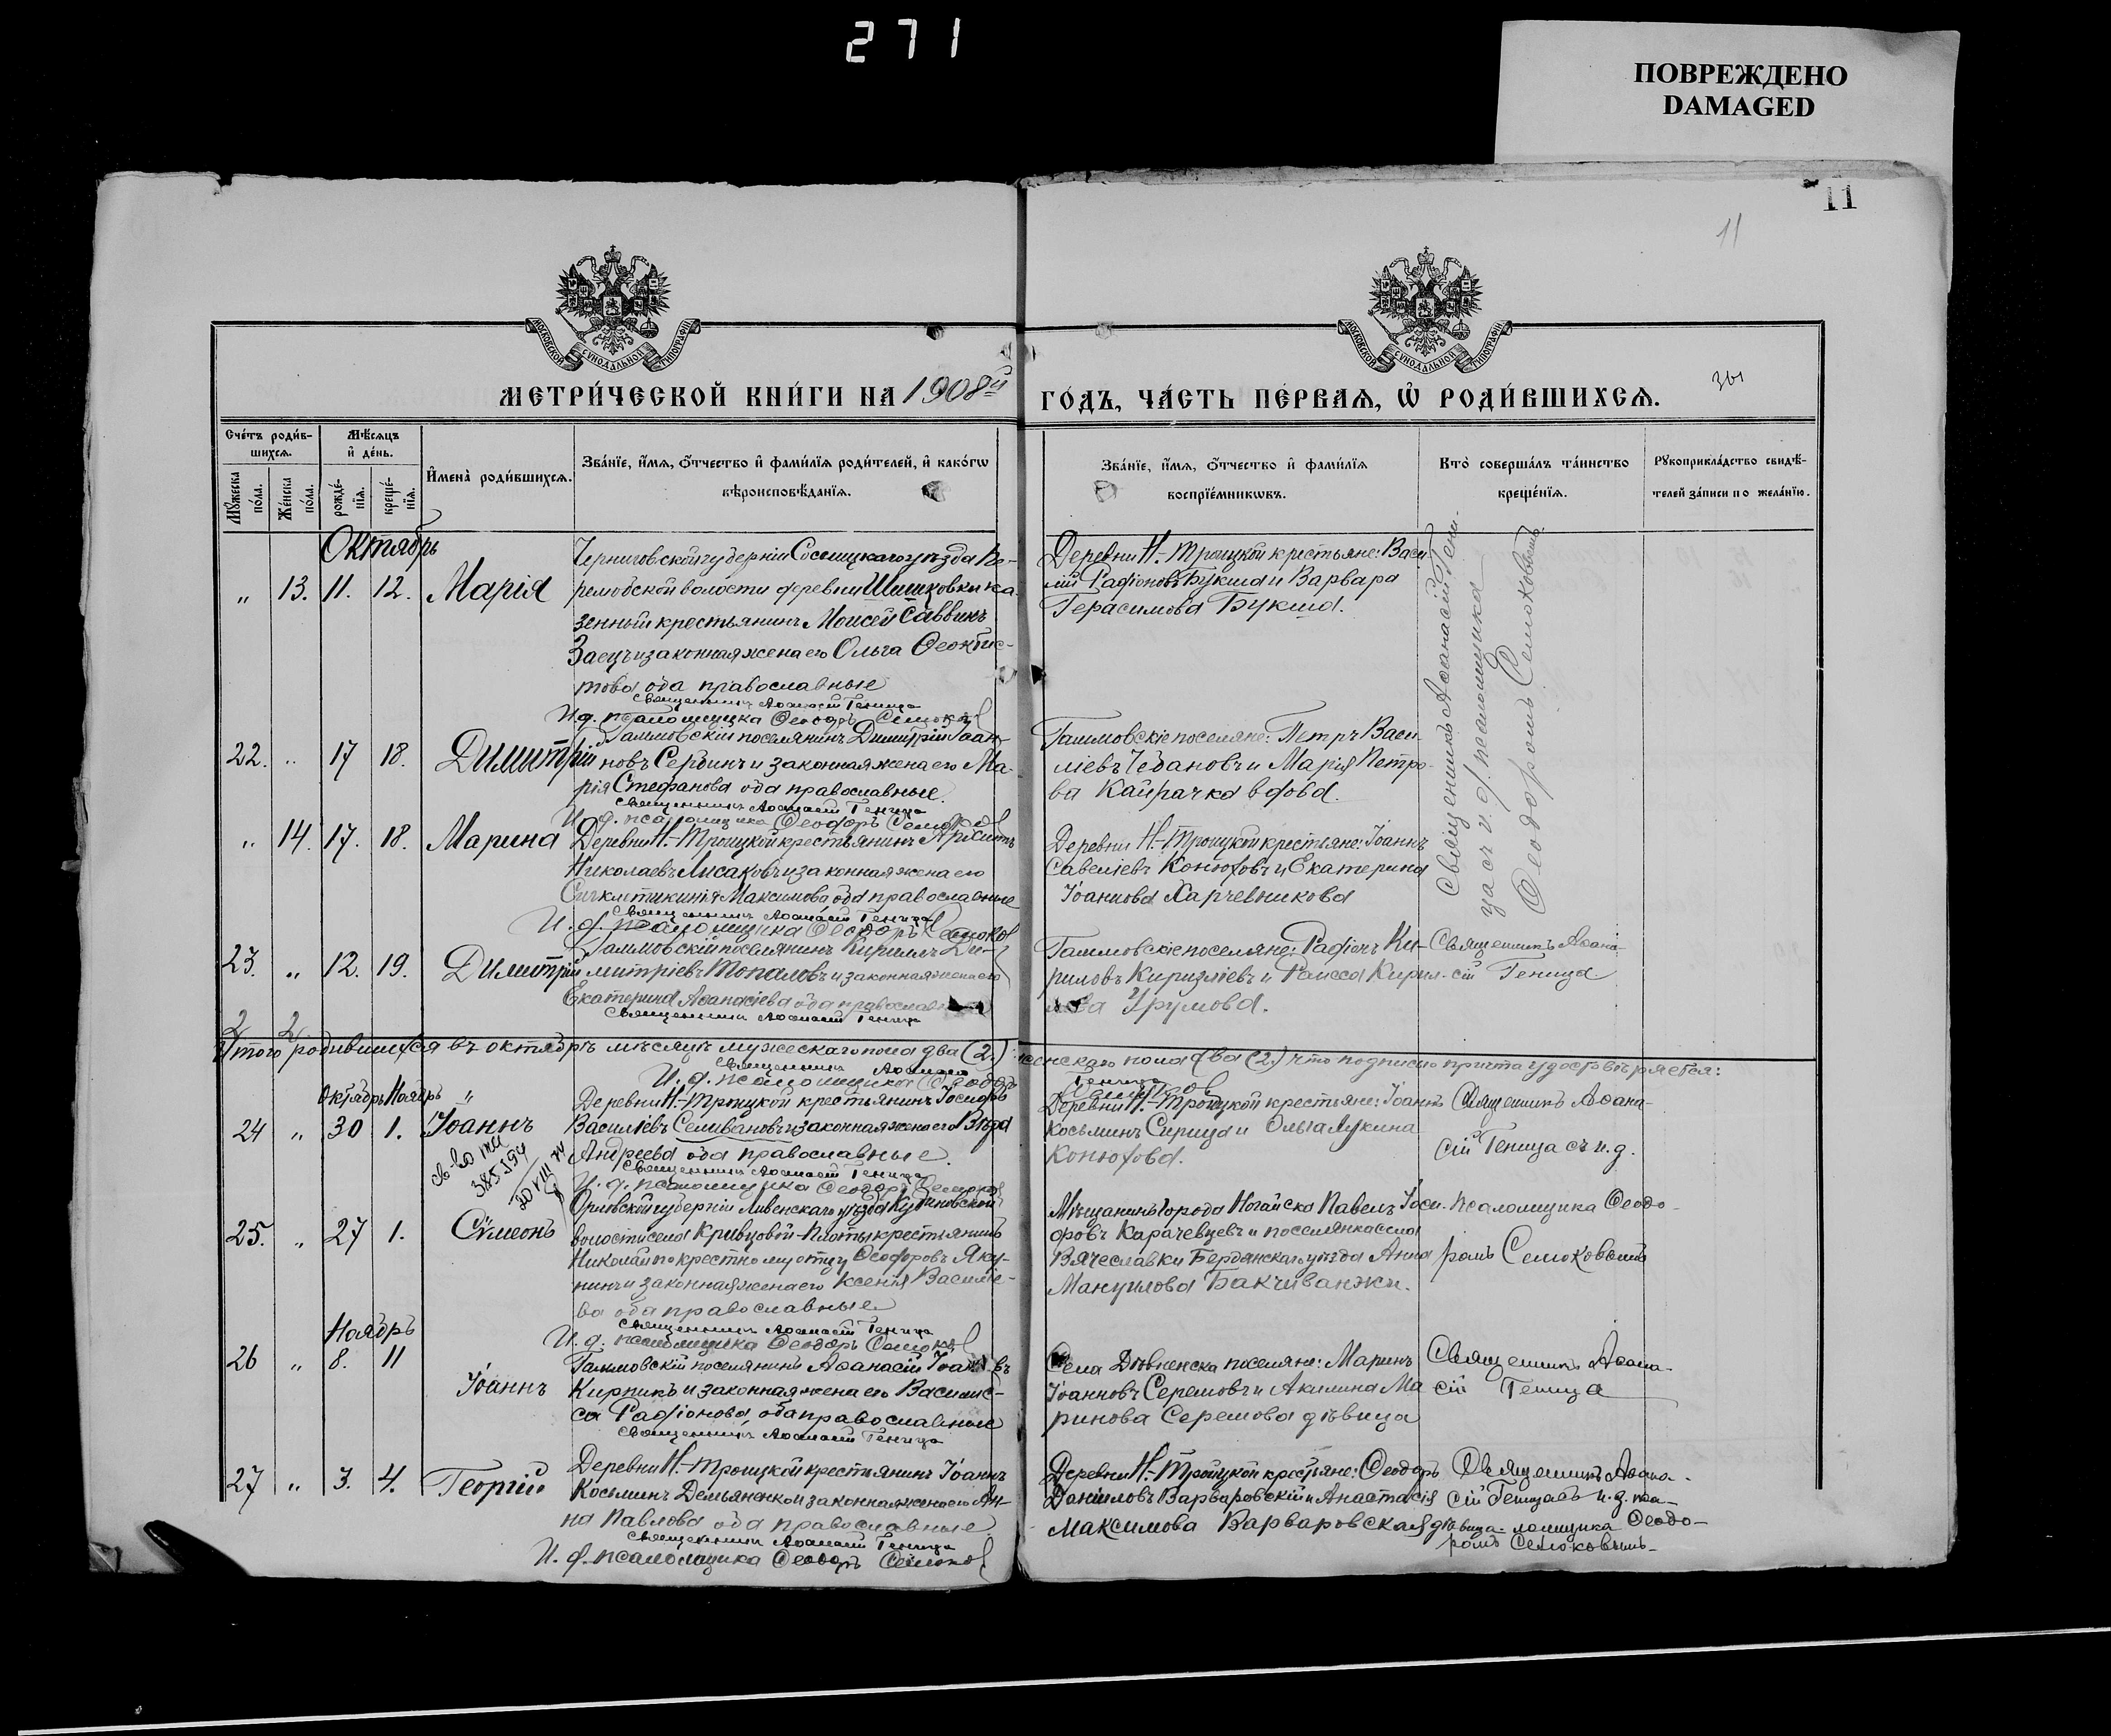 271
ПОВРЕЖДЕНО
DAMAGED
11
11
МОСКОВСКОЙ СУНОДАЛЬНОЙ ТИПОГРАФІИ
МОСКОВСКОЙ СУНОДАЛЬНОЙ ТИПОГРАФІИ
МЕТРИ́ЧЕСКОЙ КНИ́ГИ НА 1908й
ГО́ДЪ, ЧА́СТЬ ПЕ́РВАѦ, Ѡ҆ РОДИ́ВШИХСѦ.
Сче́тъ роди́в-
шихсѧ.
Мѣ́сѧцъ
и҆ де́нь.
Мꙋ́жеска по́ла.
Же́нска по́ла.
рожде́-нїѧ.
креще́-нїѧ.
И҆мена̀ роди́вшихсѧ.
Зва́нїе, и҆́мѧ, ѻ҆́тчество и҆ фами́лїѧ роди́телей, и҆ како́гѡ
вѣроисповѣ́данїѧ.
Зва́нїе, и҆́мѧ, ѻ҆́тчество и҆ фами́лїѧ
воспрїе́мникѡвъ.
Кто̀ соверша́лъ та́инство
креще́нїѧ.
Рꙋкоприкла́дство свидѣ́-
телей за́писи по жела́нїю.
Октябрь
„ 13. 11. 12. Марія
Черниговской губерніи Сосницкаго уѣзда
волости деревни Шишковки ка-
зенный крестьянинъ Моисей Саввинъ
Заецъ и законная жена его Ольга Ѳеоктис-
това оба православные
Священникъ Аѳанасій Геница
И. д. псаломщика Ѳеодоръ Семоков
Деревни Н.-Троицкой крестьяне: Васи-
лій Радіоновъ Букша и Варвара
Герасимова Букша.
Священникъ Аѳанасій Гени-
ца съ и. д. псаломщика
Ѳеодоромъ Семоковымъ
22. „ 17 18. Димитрій
Гаммовскій поселянинъ Димитрій Іоан-
новъ Сербинъ и законная жена его Ма-
рія Стефанова оба православные.
Священникъ Аѳанасій Геница
И. д. псаломщика Ѳеодоръ Семоков
Гаммовскіе поселяне: Петръ Васи-
ліевъ Чебановъ и Марія Петро-
ва Кайрачка вдова.
„ 14. 17. 18. Марина
Деревни Н.-Троицкой крестьянинъ
Николаевъ Лисаковъ и законная жена его
Максимова оба православные
Священникъ Аѳанасій Геница
И. д. псаломщика Ѳеодоръ Семоков
Деревни Н.-Троицкой крестьяне: Іоаннъ
Савеліевъ Конюховъ и Екатерина
Іоаннова Харчевникова
23. „ 12. 19. Димитрій
Гаммовскій поселянинъ Кириллъ Ди-
митріевъ Топаловъ и законная жена его
Екатерина Аѳанасіева оба православные
Священникъ Аѳанасій Геница
Гаммовскіе поселяне: Радіонъ Ки-
риловъ и Раисса Кирил-
лова Урумова.
Священникъ Аѳана-
сій Геница
2 2
Итого родившихся въ октябрѣ мѣсяцѣ мужескаго пола два (2.) женскаго пола два (2.) что подписью причта удостовѣряется:
Священникъ Аѳанасій Геница
И. д. псаломщика Ѳеодоръ Семоков
Октябрь Ноябрь
24 „ 30 1. Іоаннъ
Св-во
385594
Деревни Н.-Троицкой крестьянинъ Іосифъ
Василіевъ Селивановъ и законная жена его Вѣра
Андреева оба православные.
Священникъ Аѳанасій Геница
И. д. псаломщика Ѳеодоръ Семоков
Деревни Н.-Троицкой крестьяне: Іоаннъ
Косьминъ Сирица и Ольга Лукина
Конюхова.
Священникъ Аѳана-
сій Геница съ и. д.
псаломщика Ѳеодо-
ромъ Семоковымъ
25. „ 27 1. Сѵмеонъ
Орловской губерніи Ливенскаго уѣзда
волости села Кривцовой-Плоты крестьянинъ
Николай по крестному отцу Ѳеодоровъ Яку-
нинъ и законная жена его Ксенія Василіе-
ва оба православные
Священникъ Аѳанасій Геница
И. д. псаломщика Ѳеодоръ Семоков
Мѣщанинъ города Ногайска Павелъ Іоси-
фовъ Карачевцевъ и поселянка села
Вячеславки Бердянскаго уѣзда Анна
Мануилова Бакчиванжи.
Ноябрь
26 „ 8. 11 Іоаннъ
Гаммовскій поселянинъ Аѳанасій Іоанновъ
Кирпикъ и законная жена его Василис-
са Радіонова оба православные
Священникъ Аѳанасій Геница
Села Дѣвненска поселяне: Маринъ
Іоанновъ Серемовъ и Акилина Ма-
ринова Серемова дѣвица
Священникъ Аѳана-
сій Геница
27 „ 3. 4. Георгій
Деревни Н.-Троицкой крестьянинъ Іоаннъ
Косьминъ Демьяненко и законная жена его Ан-
на Павлова оба православные
Священникъ Аѳанасій Геница
И. д. псаломщика Ѳеодоръ Семоков
Деревни Н.-Троицкой крестьяне: Ѳеодоръ
Даніиловъ Варваровскій и Анастасія
Максимова Варваровская дѣвица.
Священникъ Аѳана-
сій Геница съ и. д. пса-
ломщика Ѳеодо-
ромъ Семоковымъ